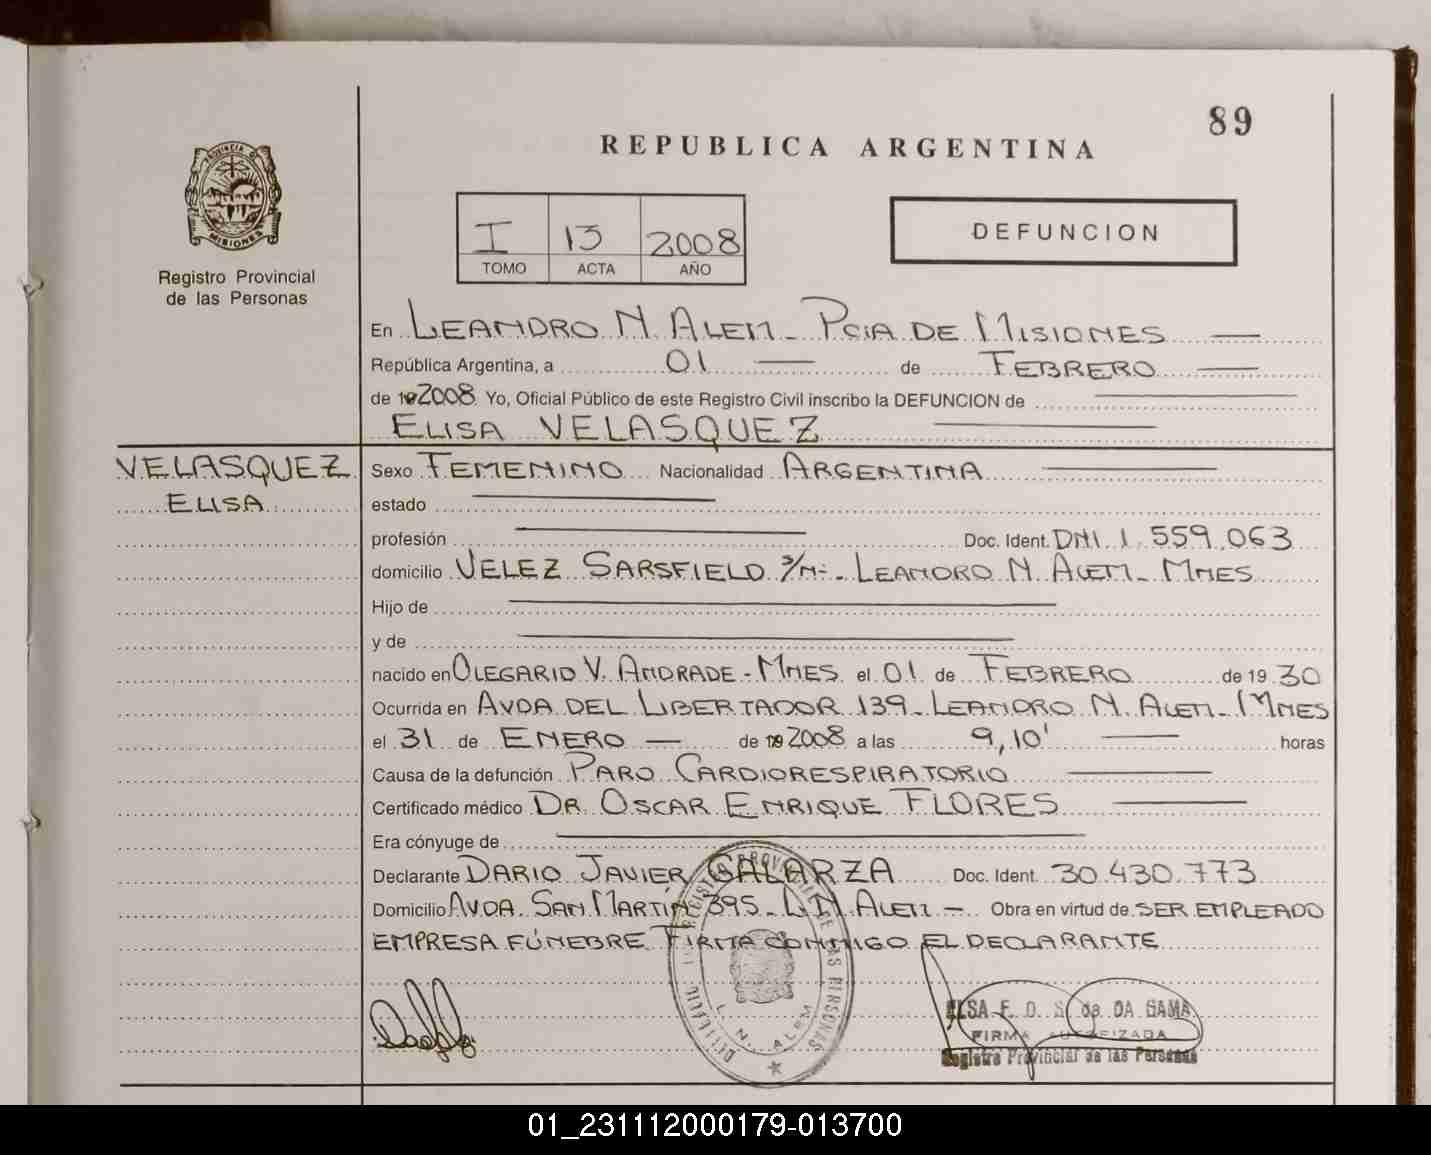 89
REPUBLICA ARGENTINA
PROVINCIA D
MISIONES
Registro Provincial
de las Personas
I 13 2008
TOMO ACTA AÑO
DEFUNCION
En LEANDRO N. ALEM - PCIA DE MISIONES
República Argentina, a 01 de FEBRERO
de 2008 Yo, Oficial Público de este Registro Civil inscribo la DEFUNCION de
ELISA VELASQUEZ
VELASQUEZ
ELISA
Sexo FEMENINO Nacionalidad ARGENTINA
estado
profesión Doc. Ident. DNI 1.559.063
domicilio VELEZ SARSFIELD S/Nº - LEANDRO N. ALEM - MNES
Hijo de
y de
nacido en OLEGARIO V. ANDRADE - MNES el 01 de FEBRERO de 1930
Ocurrida en AVDA DEL LIBERTADOR 139 - LEANDRO N. ALEM - MNES
el 31 de ENERO de 2008 a las 9,10' horas
Causa de la defunción PARO CARDIORESPIRATORIO
Certificado médico DR OSCAR ENRIQUE FLORES
Era cónyuge de
Declarante DARIO JAVIER GALARZA Doc. Ident. 30.430.773
Domicilio AVDA. SAN MARTÍN 395 - L.N. ALEM - Obra en virtud de SER EMPLEADO
EMPRESA FÚNEBRE FIRMA CONMIGO EL DECLARANTE
L. N. ALEM
ELSA F. O. S. de DA GAMA
FIRMA AUTORIZADA
Registro Provincial de las Personas
01_231112000179-013700